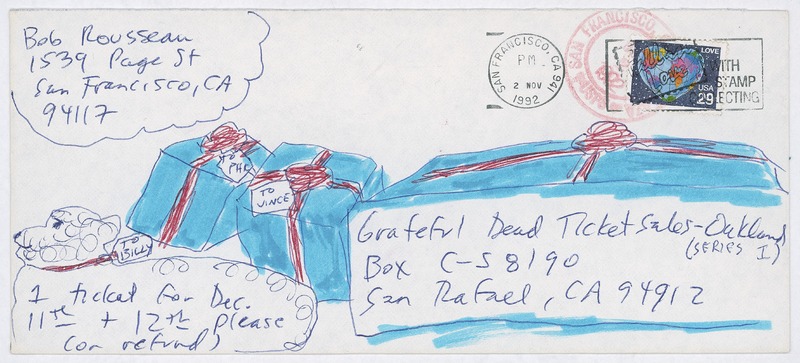 Bob Rousseau
1539 Page St
San Francisco, CA
94117
SAN FRANCISCO, CA 941
PM
2 NOV
1992
SAN FRANCISCO,
LOVE
USA
29
WITH
STAMP
COLLECTING
TO PHIL
TO VINCE
TO BILLY
Grateful Dead Ticket Sales-Oakland
(SERIES I)
Box C-S 8190
San Rafael, CA 94912
1 ticket for Dec.
11th + 12th please
(or refund)